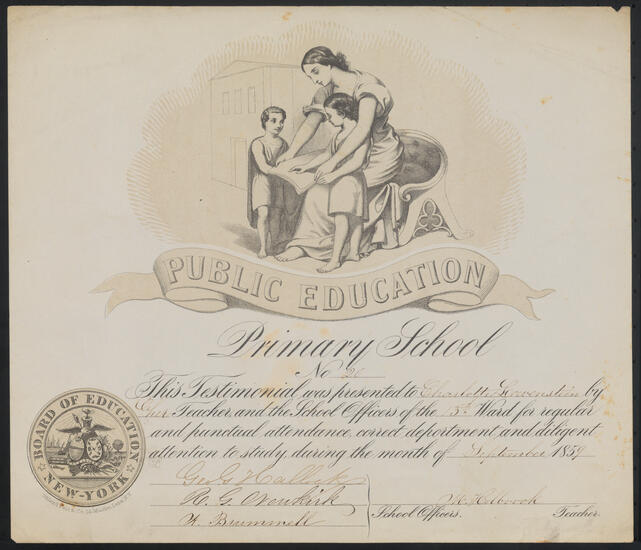 PUBLIC EDUCATION
Primary School
No 20
This Testimonial was presented to Charlotte Lowenstein by
her Teacher, and the School Officers of the 15th Ward for regular
and punctual attendance, correct deportment and diligent
attention to study, during the month of September 1859
BOARD OF EDUCATION
NEW-YORK
Geo. G. Hallock
H. G. Newkirk
A. Brummell
School Officers.
Holbrook
Teacher.